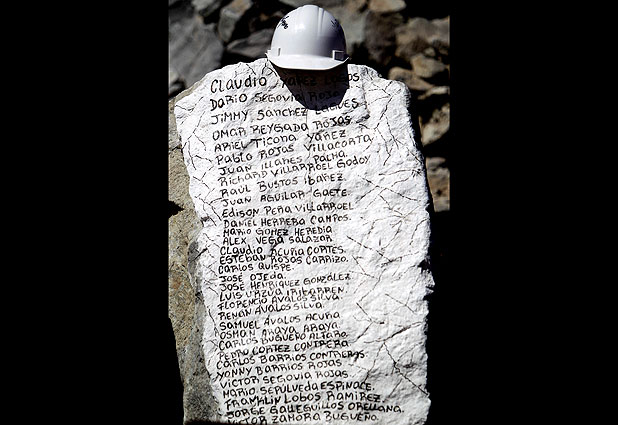 Claudio Yañez Lagos
Dario Segovia Rojas
Jimmy Sanchez Lagues
Omar Reygada Rojas
Ariel Ticona Yañez
Pablo Rojas Villacorta
Juan Illanes Palma.
Richard Villarroel Godoy
Raúl Bustos Ibañez.
Juan Aguilar Gaete.
Edison Peña Villarroel
Daniel Herrera Campos.
Mario Gomez Heredia
Alex Vega Salazar
Claudio Acuña Cortes.
Esteban Rojas Carrizo.
Carlos Quispe.
José Ojeda.
José Henriquez González
Luis Urzua Iribarren.
Florencio Avalos Silva.
Renan Avalos Silva.
Samuel Avalos Acuña
Osman Araya Araya.
Carlos Bugueño Alfaro.
Pedro Cortez Contrera
Carlos Barrios Contreras.
Yonny Barrios Rojas
Victor Segovia Rojas
Mario Sepúlveda Espinace.
Franklin Lobos Ramirez.
Jorge Galleguillos Orellana.
Victor Zamora Bugueño.